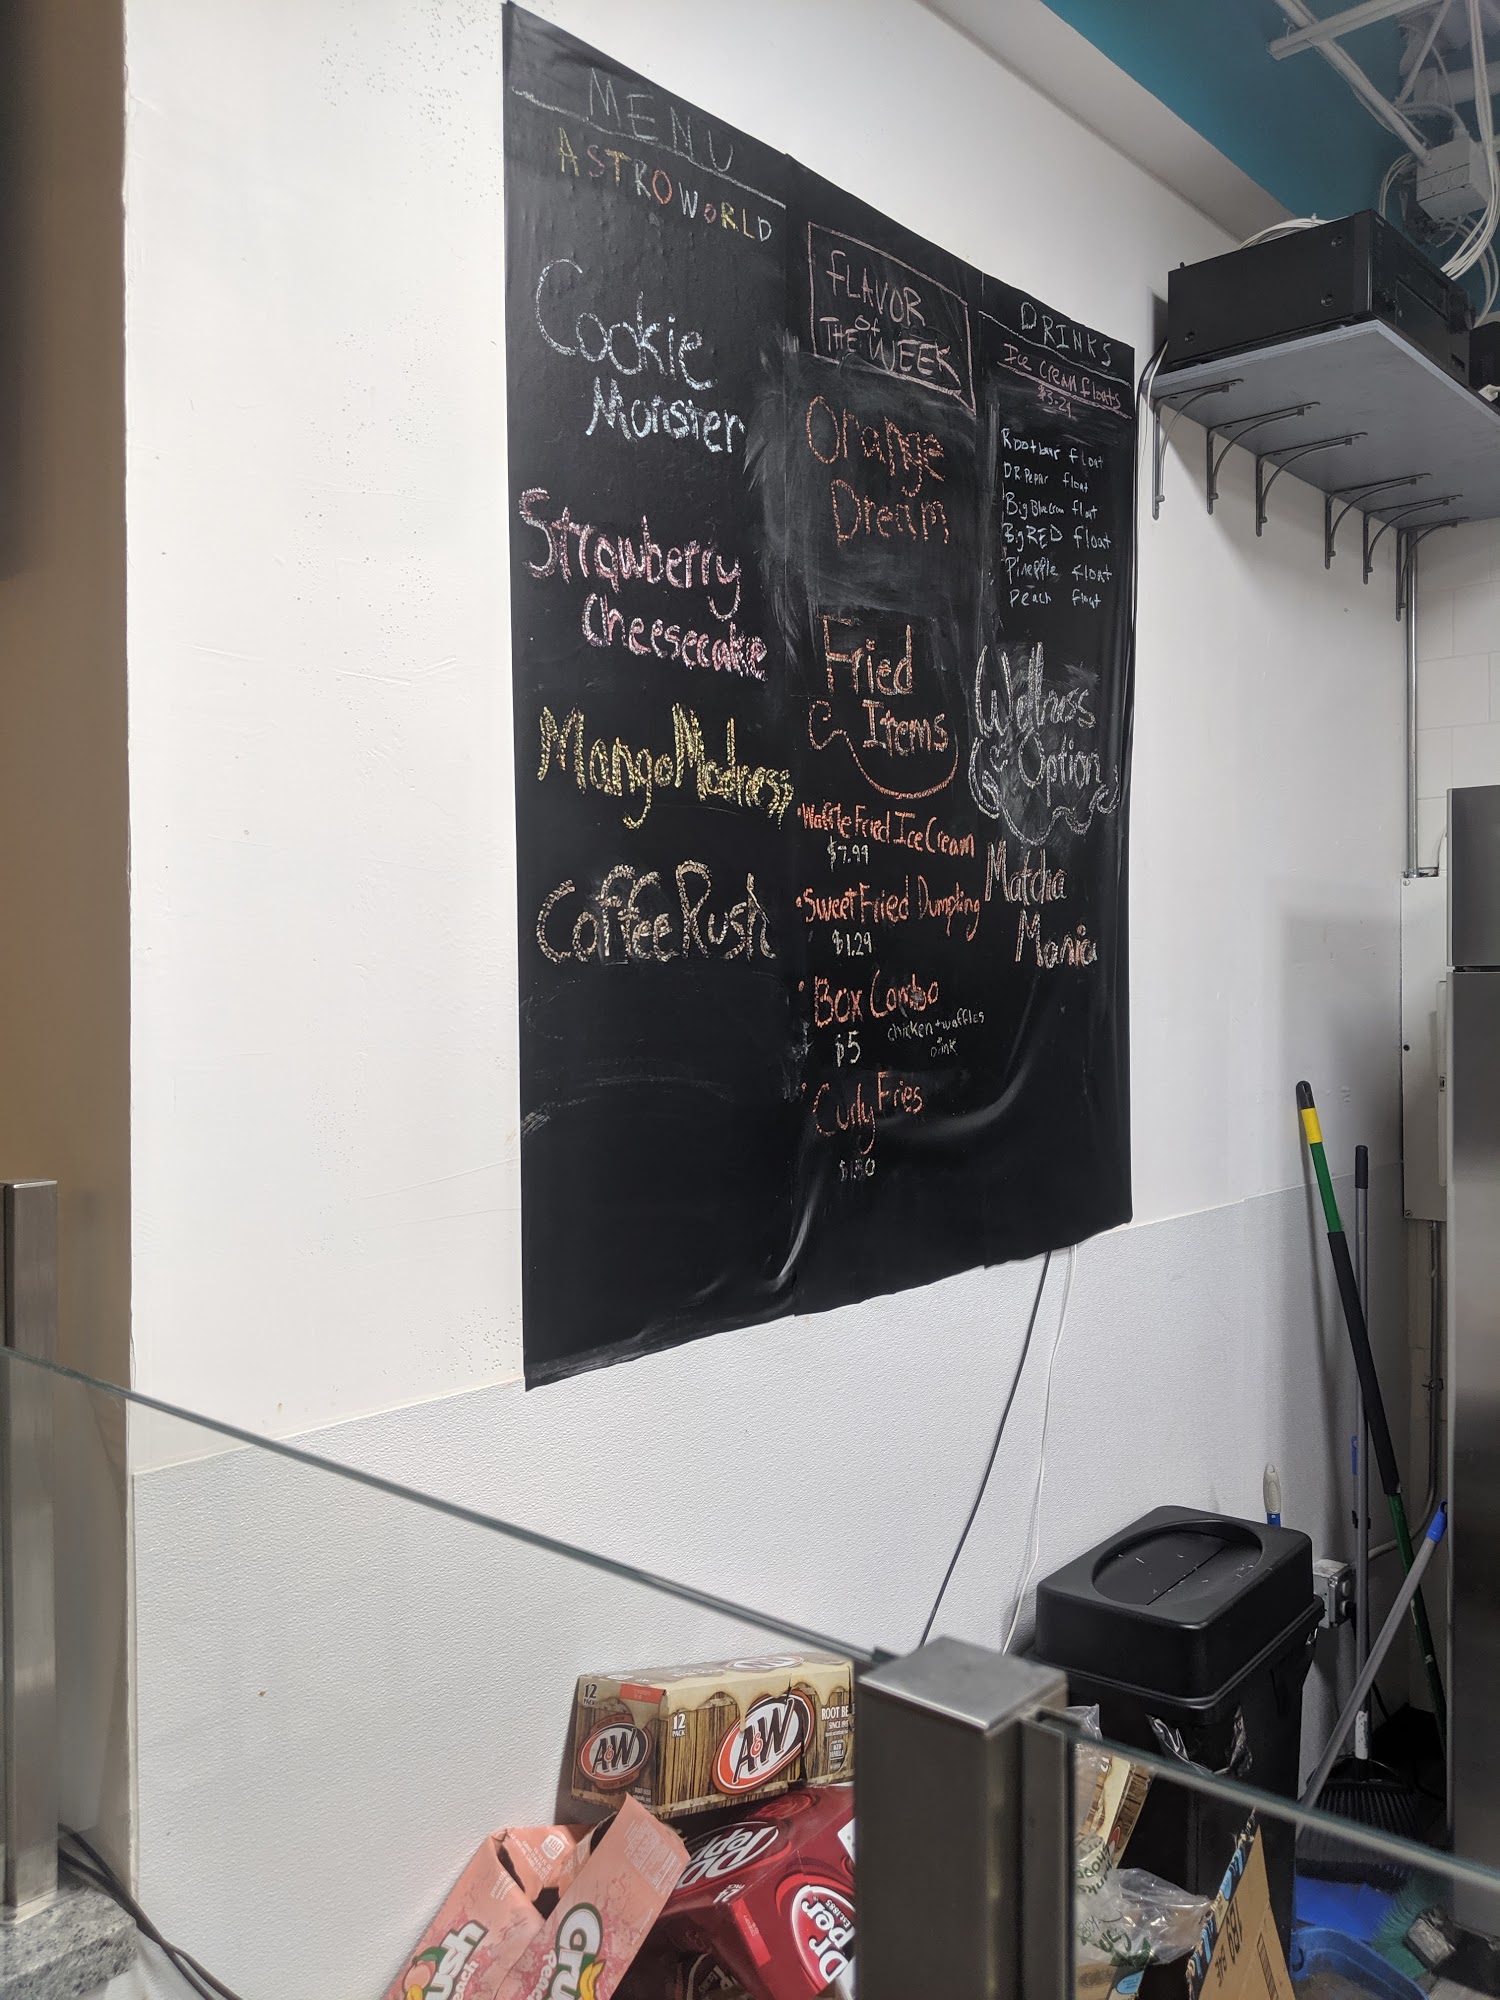 MENU
ASTROWORLD
Cookie
Monster
Strawberry
Cheesecake
Mango Madness
Coffee Rush
FLAVOR
OF
THE WEEK
Orange
Dream
Fried
Items
• Waffle Fried Ice Cream
$7.99
• Sweet Fried Dumpling
$1.29
• Box Combo
$5
chicken + waffles
Drink
• Curly Fries
$1.50
DRINKS
Ice cream floats
$3.24
Rootbeer float
DR Peper float
Big Blue Cream float
Big RED float
Pinepple float
Peach float
Wellness
Option
Matcha
Mania
12
PACK
A&W
12
PACK
A&W
ROOT BE
Dr Pepper
24
Dr
per
EST. 1885
ush
each
Cru
Peac